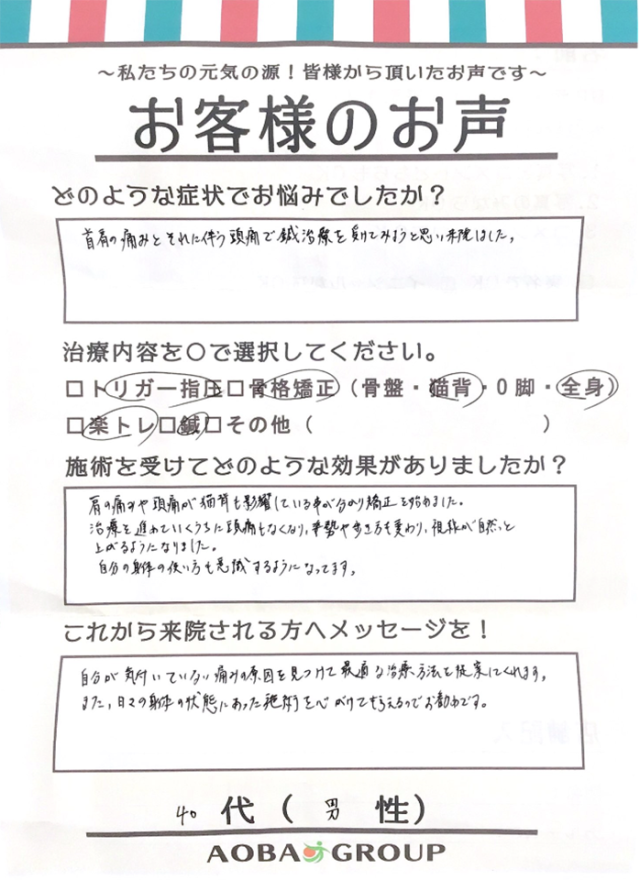 ～私たちの元気の源！皆様から頂いたお声です～
お客様のお声
どのような症状でお悩みでしたか？
首肩の痛みとそれに伴う頭痛で鍼治療を受けてみようと思い来院しました。
治療内容を〇で選択してください。
□トリガー指圧□骨格矯正（骨盤・猫背・O脚・全身）
□楽トレ□鍼□その他（　　　　　　　　　）
施術を受けてどのような効果がありましたか？
肩の痛みや頭痛が猫背も影響している事が分かり矯正を始めました。
治療を進めていくうちに頭痛もなくなり、姿勢や歩き方も変わり、視線が自然と
上がるようになりました。
自分の身体の使い方も意識するようになってます。
これから来院される方へメッセージを！
自分が気付いていない痛みの原因を見つけて最適な治療方法を提案してくれます。
また、日々の身体の状態にあった施術を心がけてもらえるのでお勧めです。
40 代（ 男 性）
AOBA GROUP